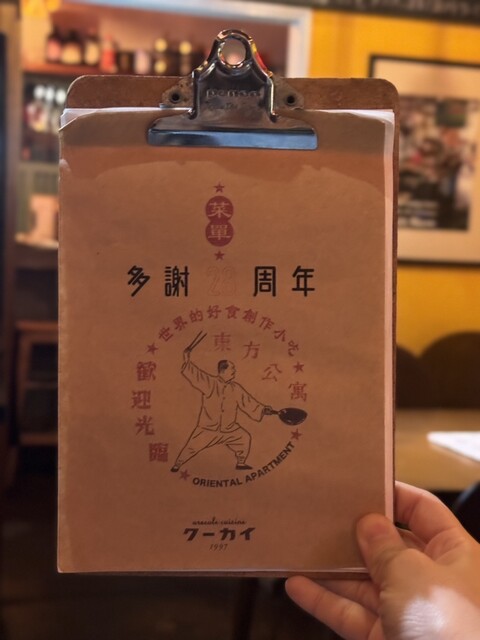 菜
單
多謝 周年
世界的好食創作小吃
東方公寓
歡迎光臨
ORIENTAL APARTMENT
クーカイ
1997